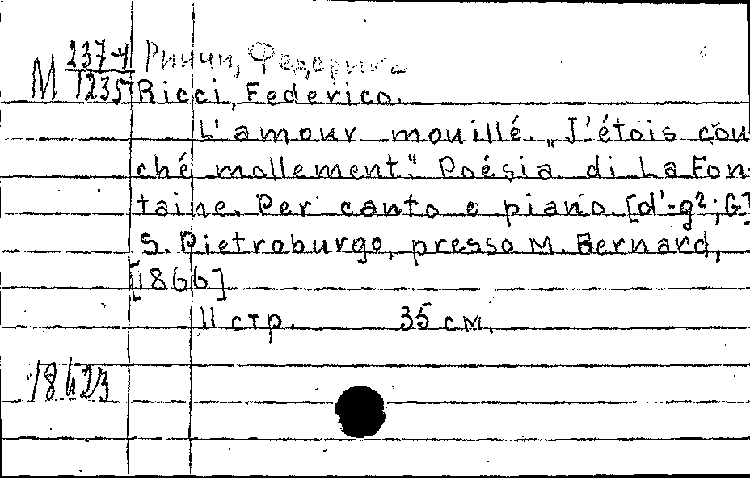 М 237-4/1235 Риччи, Федерико
Ricci, Federico.
L'amour mouillé. „J'étois cou-
ché mollement." Poésia di La Fon-
taine. Per canto e piano [d'-g²; G]
S. Pietroburgo, presso M. Bernard,
[1866]
11 стр. 35 см.
18623